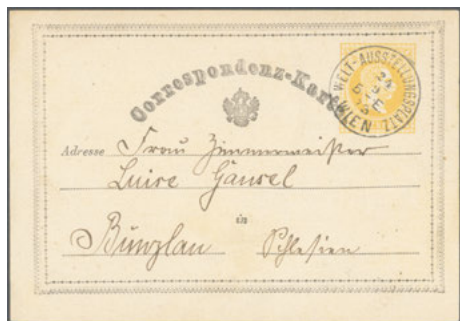 Correspondenz-Karte
WELT-AUSSTELLUNGSPLATZ
WIEN
Adresse Frau Zimmermeister
Luise
in
Bunzlau Schlesien